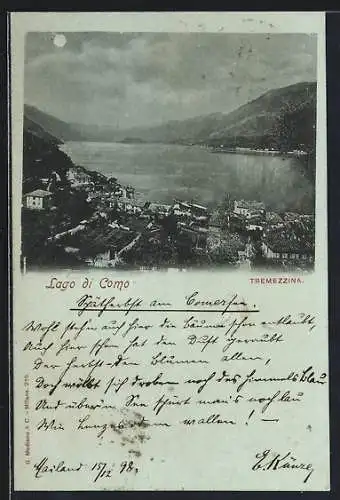 Lago di Como
TREMEZZINA.
Spätherbst am Comersee.
Wohl stehn auch hier die Bäume schon entlaubt,
Auch hier schon hat den Duft geraubt
Der Herbst den Blumen allen,
Doch wölbt sich droben noch des Himmels Blau
Und über'm See spürt man's noch lau
Wie Lenzesodem wallen! –
Mailand 15/12 98.
E. Künze
G. Modiano & C. - Milano.